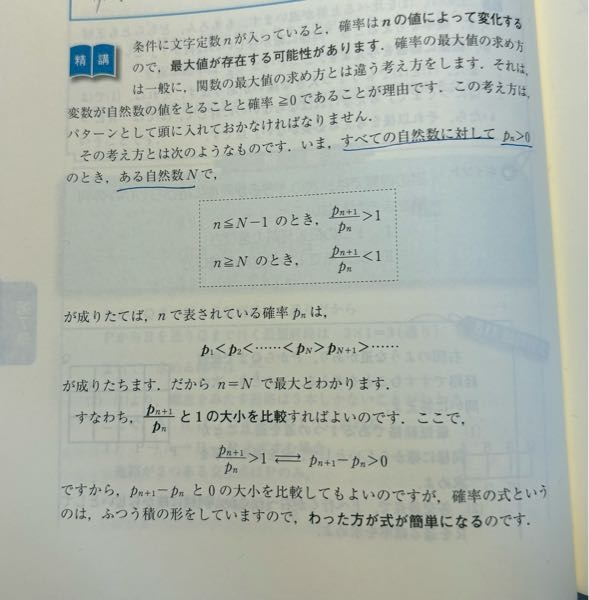 条件に文字定数nが入っていると，確率はnの値によって変化する
精講
ので，最大値が存在する可能性があります．確率の最大値の求め方
は一般に，関数の最大値の求め方とは違う考え方をします．それは，
変数が自然数の値をとることと確率≧0であることが理由です．この考え方は，
パターンとして頭に入れておかなければなりません．
その考え方とは次のようなものです．いま，すべての自然数に対して pₙ>0
のとき，ある自然数Nで，
n≦N−1 のとき，pₙ₊₁/pₙ>1
n≧N のとき，pₙ₊₁/pₙ<1
が成りたてば，nで表されている確率 pₙ は，
p₁<p₂<……<p_N>p_{N+1}>……
が成りたちます．だから n=N で最大とわかります．
すなわち，pₙ₊₁/pₙ と1の大小を比較すればよいのです．ここで，
pₙ₊₁/pₙ>1 ⟺ pₙ₊₁−pₙ>0
ですから，pₙ₊₁−pₙ と0の大小を比較してもよいのですが，確率の式という
のは，ふつう積の形をしていますので，わった方が式が簡単になるのです．